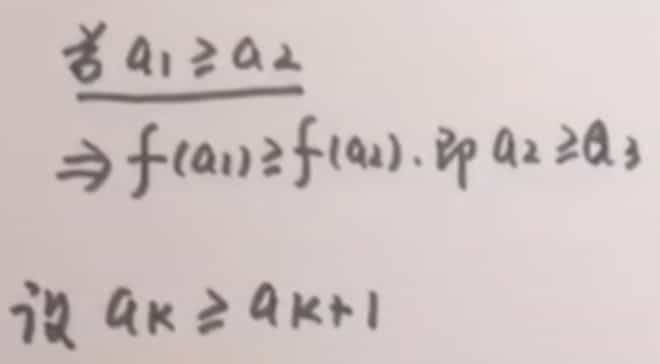 若 a₁ ≥ a₂
⇒ f(a₁) ≥ f(a₂). 即 a₂ ≥ a₃
设 aₖ ≥ aₖ₊₁